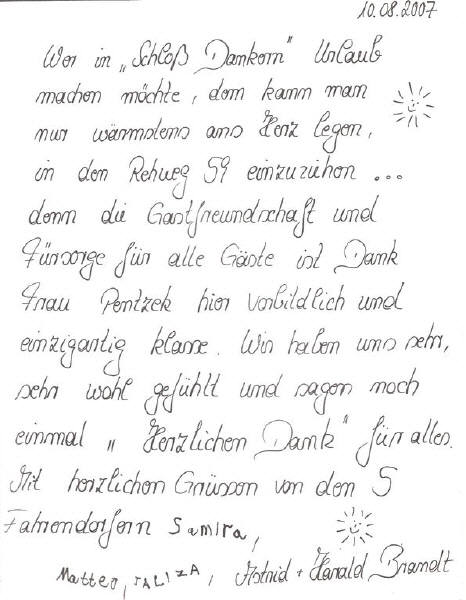 10.08.2007
Wer in „Schloß Dankern" Urlaub
machen möchte, dem kann man
nur wärmstens ans Herz legen,
in den Rehweg 59 einzuziehen ...
denn die Gastfreundschaft und
Fürsorge für alle Gäste ist Dank
Frau Pentzek hier vorbildlich und
einzigartig klasse. Wir haben uns sehr,
sehr wohl gefühlt und sagen noch
einmal „Herzlichen Dank" für alles.
Mit herzlichen Grüssen von den 5
Fahrendorfern Samira,
Matteo, TALIZA, Astrid + Harald Brandt